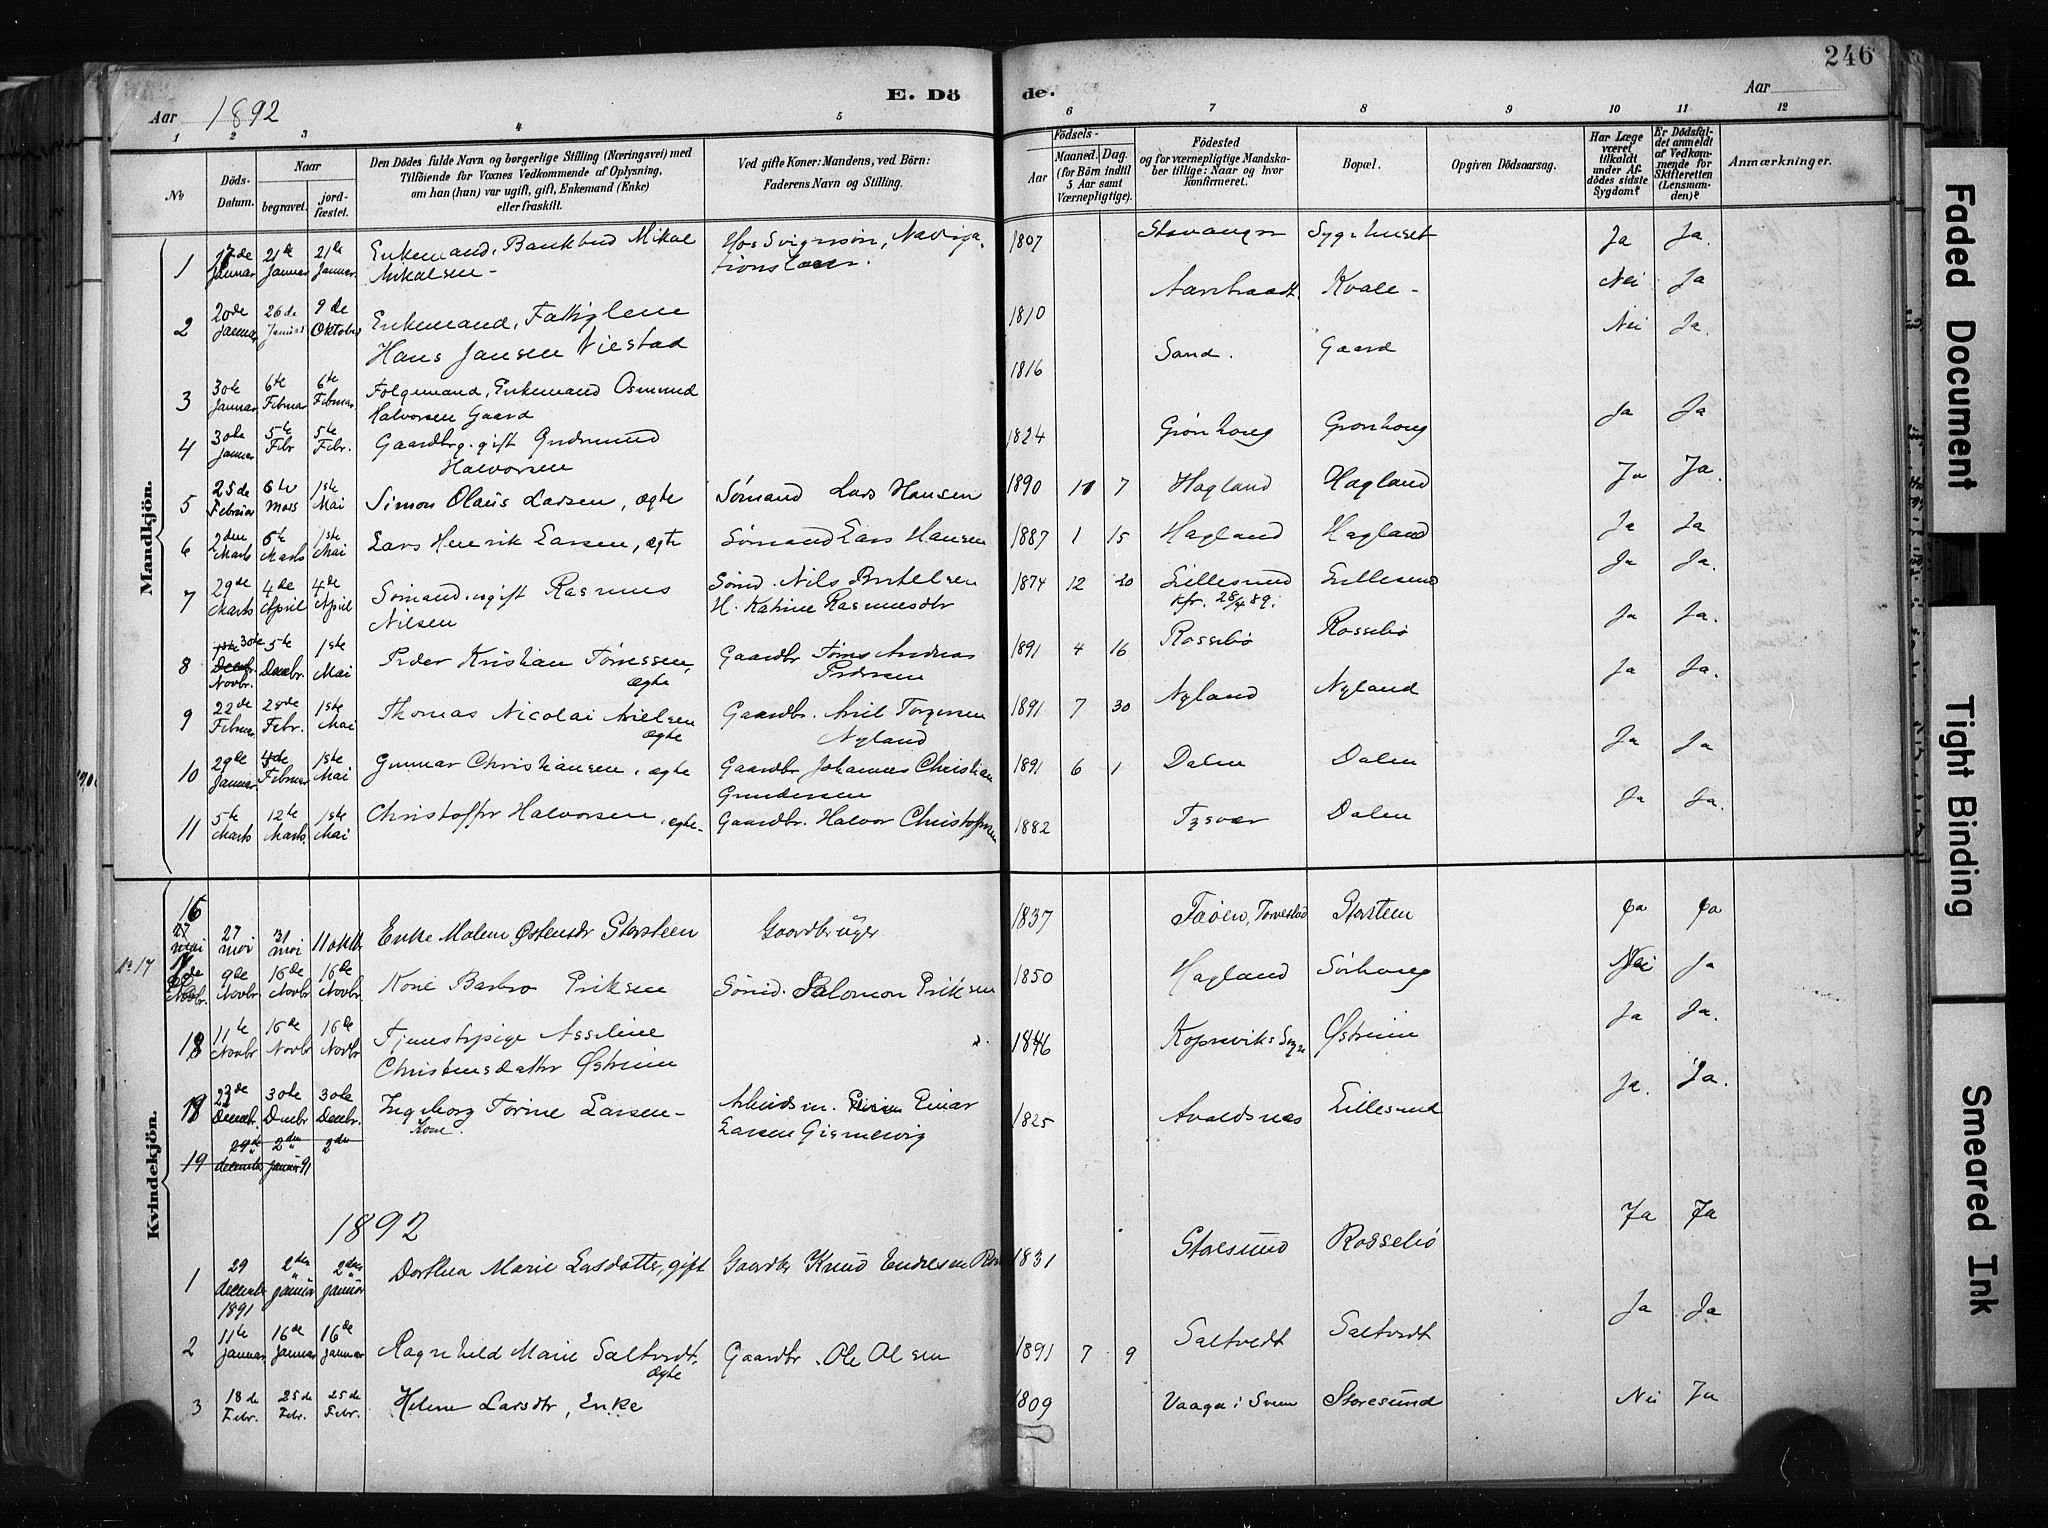 246
E. Döde.
Aar 1892
Aar
1 2 3 4 5 6 7 8 9 10 11 12
No
Döds-Datum.
Naar
begravet.
jordfæstet.
Den Dödes fulde Navn og borgerlige Stilling (Næringsvei) med
Tilföiende for Voxnes Vedkommende af Oplysning,
om han (hun) var ugift, gift, Enkemand (Enke)
eller fraskilt.
Ved gifte Koner: Mandens, ved Börn:
Faderens Navn og Stilling.
Födsels-
Aar
Maaned. Dag.
(for Börn indtil
5 Aar samt
Værnepligtige).
Födested
og for værnepligtige Mandskaber
tillige: Naar og hvor
konfirmeret.
Bopæl.
Opgiven Dödsaarsag.
Har Læge
været
tilkaldt
under Afdödes
sidste
Sygdom?
Er Dödsfaldet
anmeldt
af Vedkommende
for
Skifteretten
(Lensmanden)?
Anmærkninger.
Mandkjön.
1 17de Januar 21de Januar 21de Januar Enkemand, Mikal Mikalsen - Hos Navigationslærer. 1807 Stavanger Sygehuset Ja Ja.
2 20de Januar 26de Januar 9de Oktober Enkemand, Fattiglem Hans Jansen Viestad 1810 Kvale - Nei Ja
3 30te Januar 6te Februar 6te Februar Folgemand, Enkemand Osmund Halvorsen Gaard 1816 Sand. Gaard Nei Ja.
4 30te Januar 5te Febr 5te Febr. Gaardbrg. gift Gudmund Halvorsen 1824 Grønhoug Grønhoug Ja Ja
5 25de Februar 6te Mars 1ste Mai Simon Olaus Larsen, ægte Sømand Lars Hansen 1890 7 Hagland Hagland Ja Ja.
6 2den Marts 6te Marts 1ste Mai Lars Henrik Larsen, ægte Sømand Lars Hansen 1887 1 15 Hagland Hagland Ja Ja
7 29de Marts 4de April 4de April Sømand ugift Rasmus Nilsen Sømd. Nils Bertelsen H. Katrine Rasmusdtr 1874 12 20 Lillesund kfr. 28/4 89. Lillesund Ja Ja.
8 1ste 30te Decbr. Novbr. 5te Decbr. 1ste Mai Peder Kristian Tønnessen, ægte Gaardbr Tønnes Andreas Pedersen 1891 4 16 Rossebø Rossebø Ja Ja.
9 22de Februar 28de Febr. 1ste Mai Thomas Nicolai Arielsen ægte Gaardbr. Ariel Torgersen Nyland 1891 7 30 Nyland Nyland Ja Ja.
10 29de Januar 4de Februar 1ste Mai Gunnar Christiansen, ægte Gaardbr Johannes Christian Gundersen 1891 6 1 Dalen Dalen Ja Ja
11 5te Marts 12te Marts. 1ste Mai Christoffer Halvorsen, ægte - Gaardbr. Halvor Christoffersen 1882 Tysvær Dalen Ja Ja.
Kvindekjön.
16 27 mai 27 mai 31 mai 11 oktbr Enke Malene Østensdr Storsteen Gaardbruger 1837 Faøen, Torvestad Storsteen Ja Ja
No 17 Novbr. 9de Novbr 16de Novbr 16de Novbr Kone Barbro Eriksen Sømd. Salomon Eriksen 1850 Hagland Sørhoug Nei Ja
18 11te Novbr 16de Novbr 16de Novbr Tjenestepige Asseline Christensdatter Østreim 1846 Kopervik Sogn Østreim Ja Ja.
18 23de Decbr. 30te Decbr 30te Decbr. Ingeborg Torine Larsen - Kone. Arbeidsm. Einar Larsen Gismervig 1825 Avaldsnes Lillesund Ja. Ja.
19 29de december 2den januar 91 2den
1892
1 29 december 1891 2den januar 2den januar Dorthea Marie Larsdatter, gift Gaardbr Knud Endresen 1831 Storesund Rossebø Ja Ja
2 11te Januar 16de Januar 16de Januar Ragnhild Marie Saltvedt, ægte Gaardbr. Ole Olsen 1891 7 9 Saltvedt Saltvedt Ja Ja
3 18de Febr. 25de Febr. 25de Febr. Helene Larsdtr, Enke 1809 Vaaga i Sveen Storesund Nei Ja
Faded Document
Tight Binding
Smeared Ink